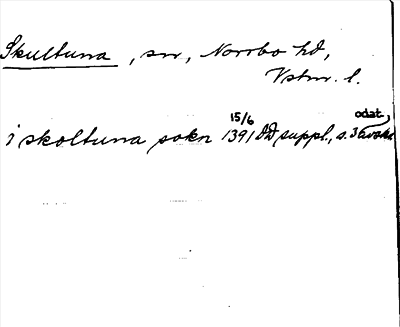 Skultuna, sn, Norrbo hd,
Vstm. l.
i skoltuna sokn 1391 15/6 DD suppl., s. 36 odat. avskr.